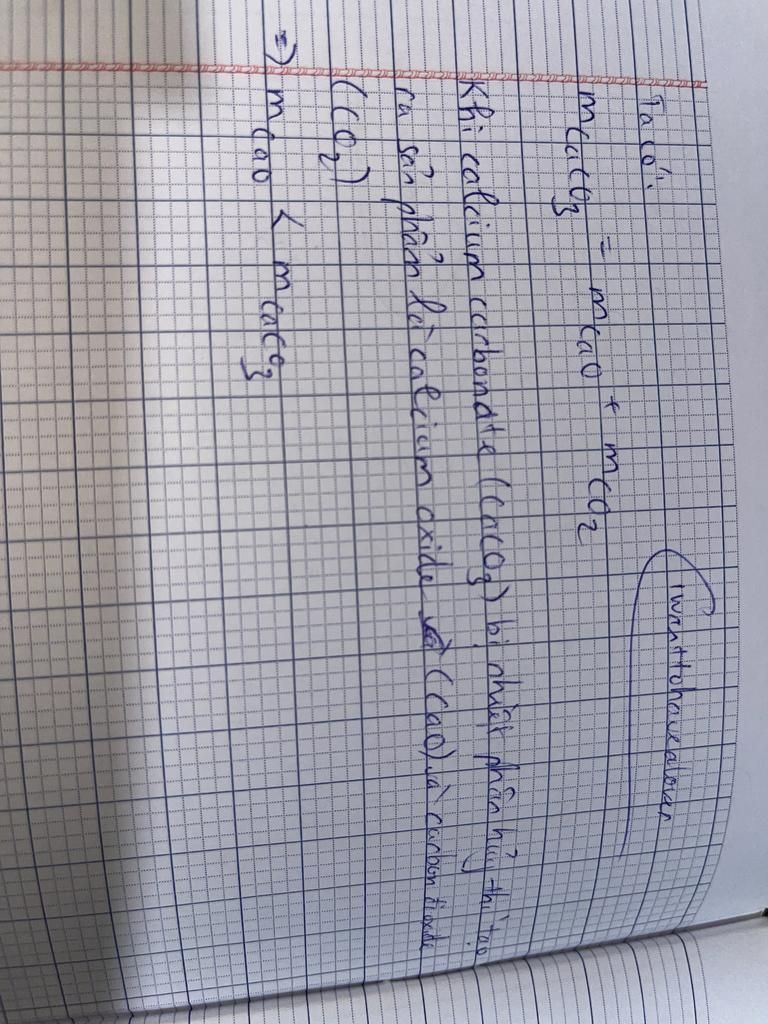 Ta có:
iwanttohavealover
mCaCO3 = mCaO + mCO2
Khi calcium carbonate (CaCO3) bị nhiệt phân hủy thì tạo
ra sản phẩm là calcium oxide (CaO) và carbon dioxide
(CO2)
=> mCaO < mCaCO3